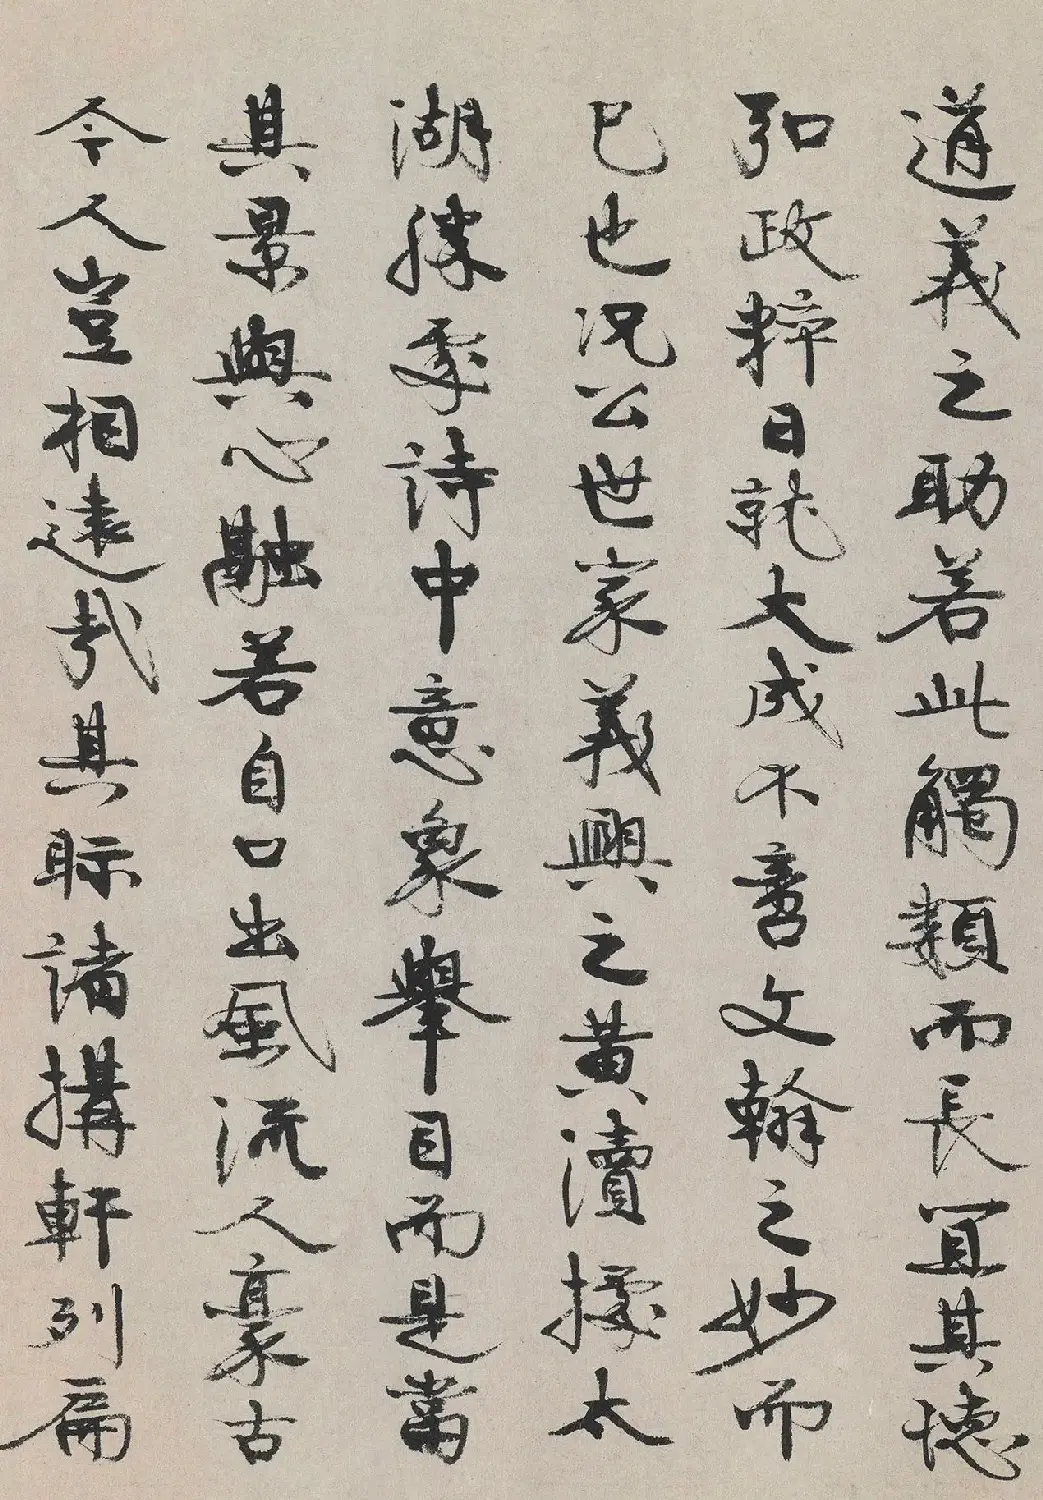 道義之助若此觸類而長宜其德
弘政粹日就大成不啻文翰之妙而
已也况公世家義興之黃瀆據太
湖勝處詩中意象舉目而是當
其景與心融若自口出風流人豪古
今人豈相遠哉其眎諸搆軒列扁